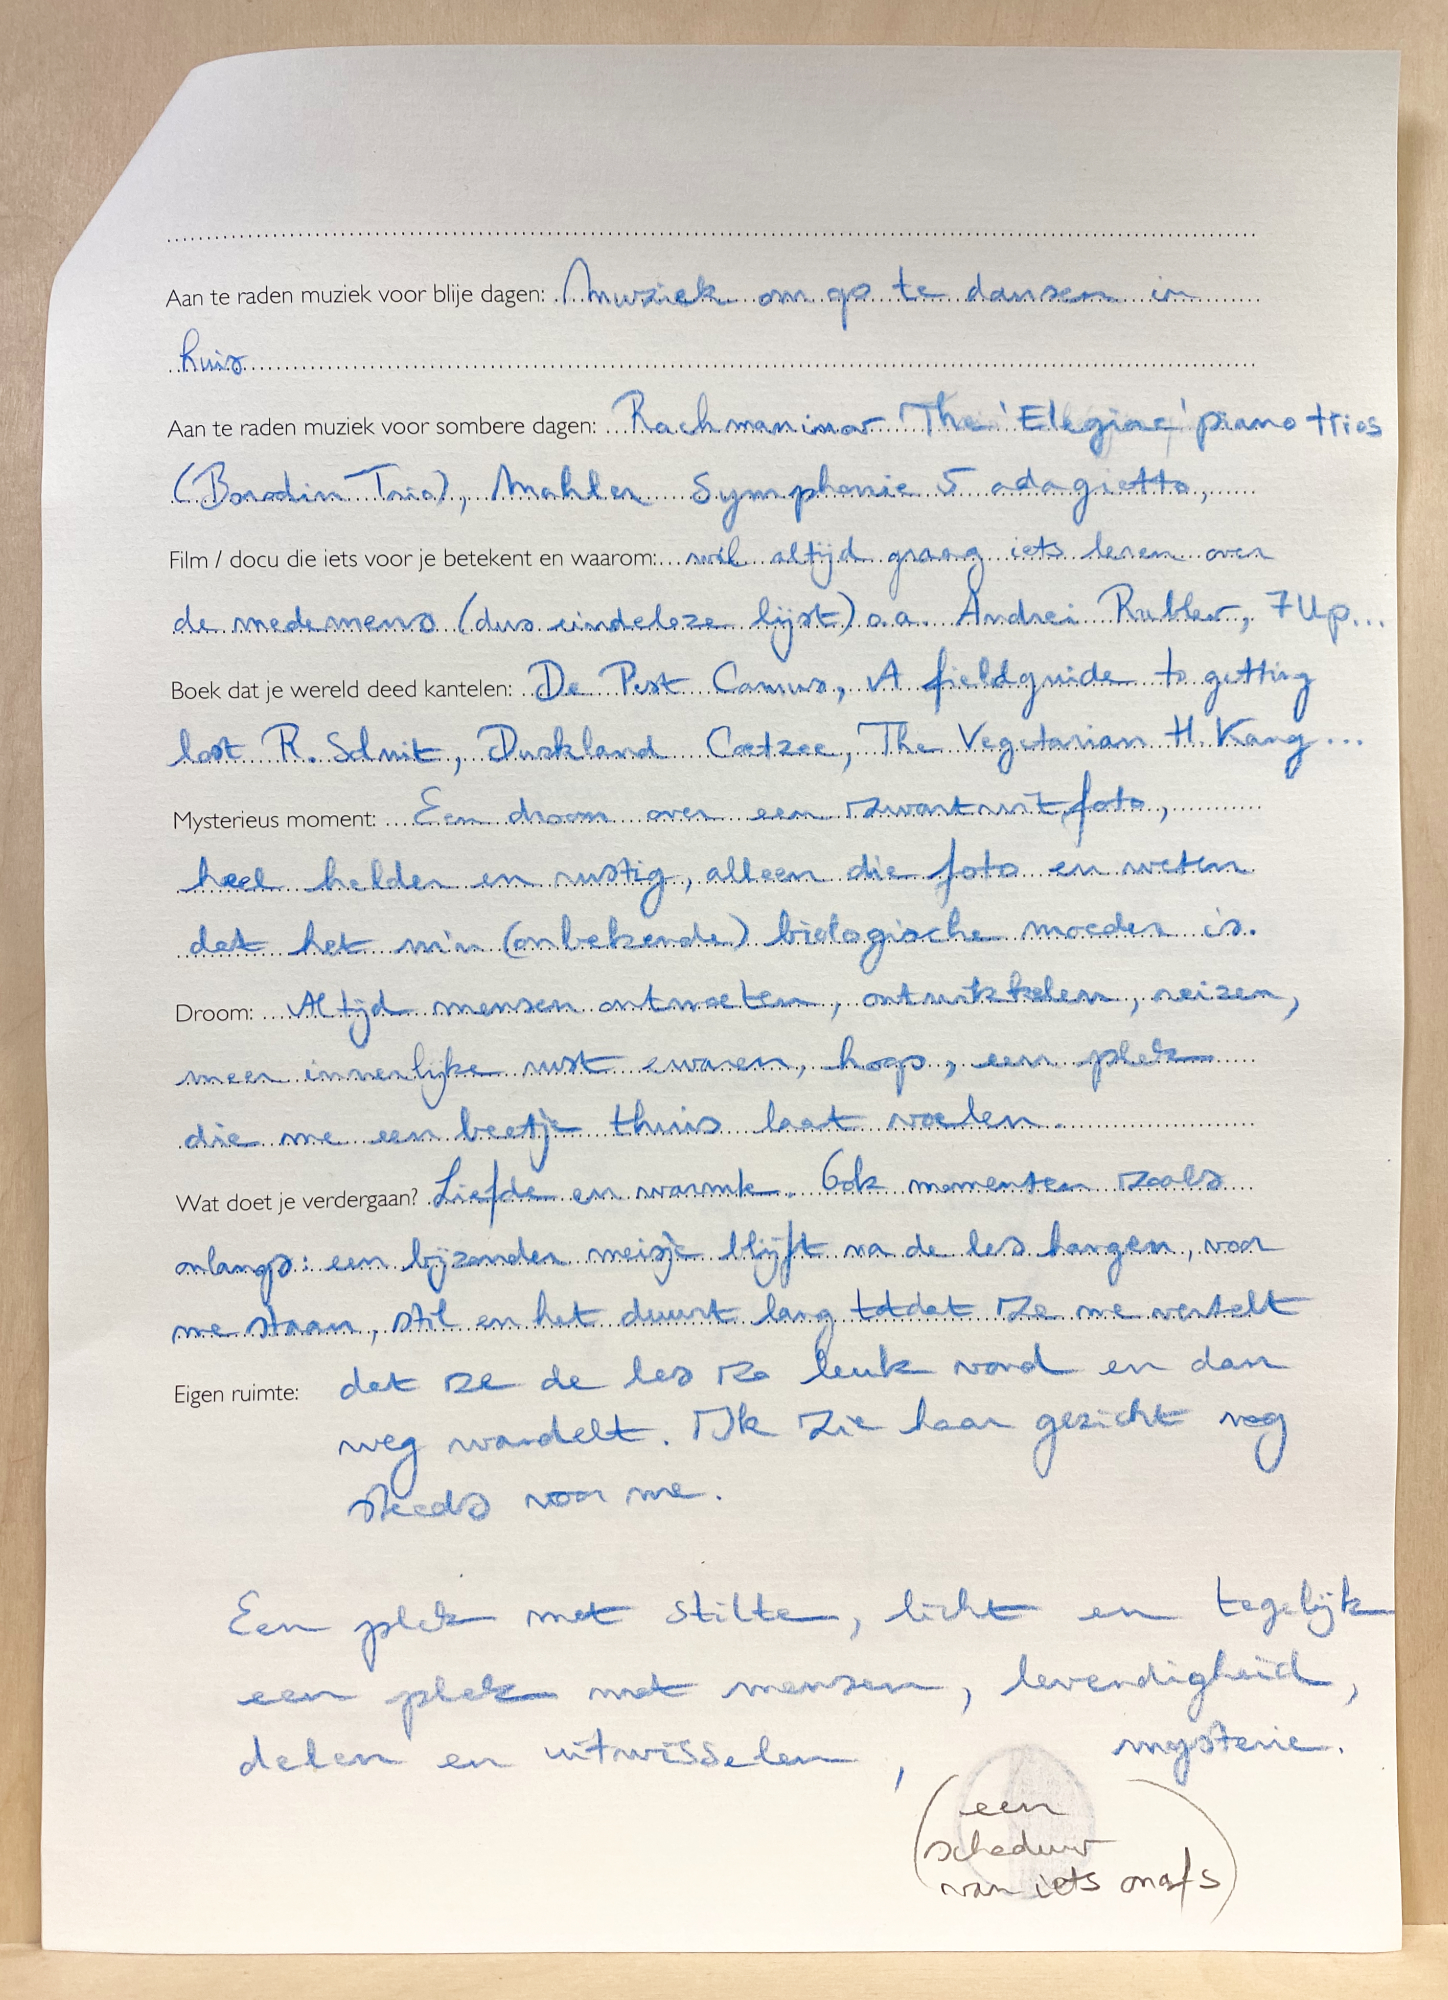 Aan te raden muziek voor blije dagen: Muziek om op te dansen in
huis
Aan te raden muziek voor sombere dagen: Rachmaninov The 'Elegiac' piano trios
(Borodin Trio), Mahler Symphonie 5 adagietto,
Film / docu die iets voor je betekent en waarom: wil altijd graag iets leren over
de medemens (dus eindeloze lijst) o.a. Andrei Rublev, 7Up...
Boek dat je wereld deed kantelen: De Pest Camus, A fieldguide to getting
lost R. Solnit, Duskland Coetzee, The Vegetarian H. Kang...
Mysterieus moment: Een droom over een zwartwit foto,
heel helder en rustig, alleen die foto en weten
dat het m'n (onbekende) biologische moeder is.
Droom: Altijd mensen ontmoeten, ontwikkelen, reizen,
meer innerlijke rust ervaren, hoop, een plek
die me een beetje thuis laat voelen.
Wat doet je verdergaan? Liefde en warmte. Ook momenten zoals
onlangs: een bijzonder meisje blijft na de les hangen, voor
me staan, stil en het duurt lang totdat ze me vertelt
Eigen ruimte: dat ze de les zo leuk vond en dan
weg wandelt. Ik zie haar gezicht nog
steeds voor me.
Een plek met stilte, licht en tegelijk
een plek met mensen, levendigheid,
delen en uitwisselen, mysterie.
(een
schaduw
van iets onafs)